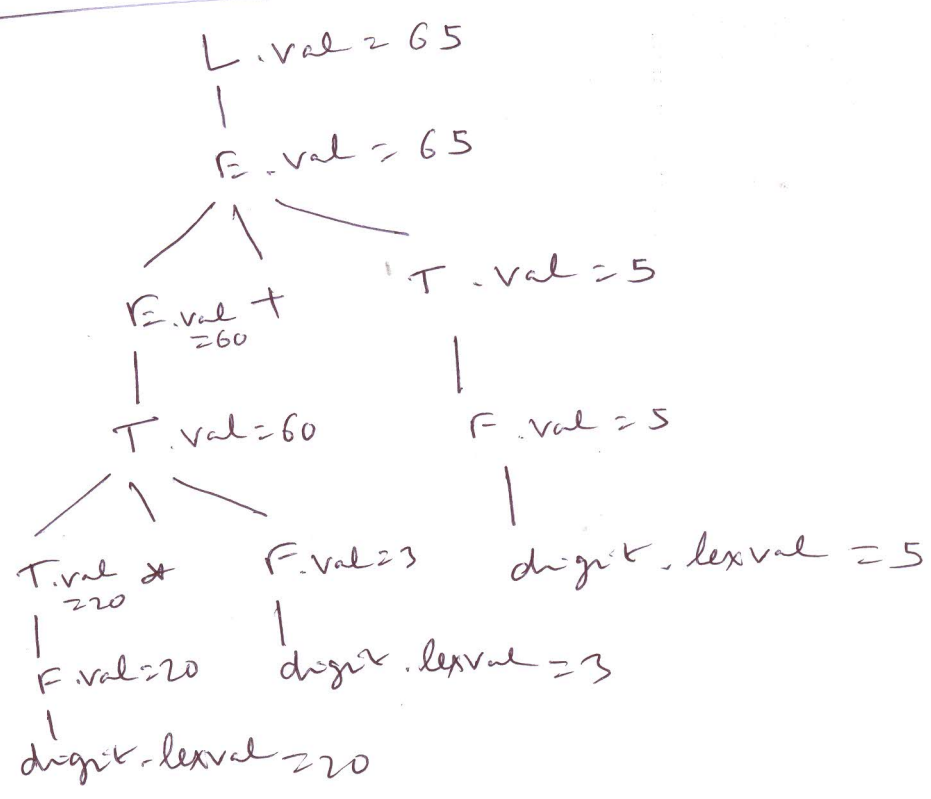 L.val = 65
E.val = 65
E.val + T.val = 5
=60
T.val=60 F.val = 5
T.val * F.val=3 digit.lexval = 5
=20
F.val=20 digit.lexval = 3
digit.lexval = 20